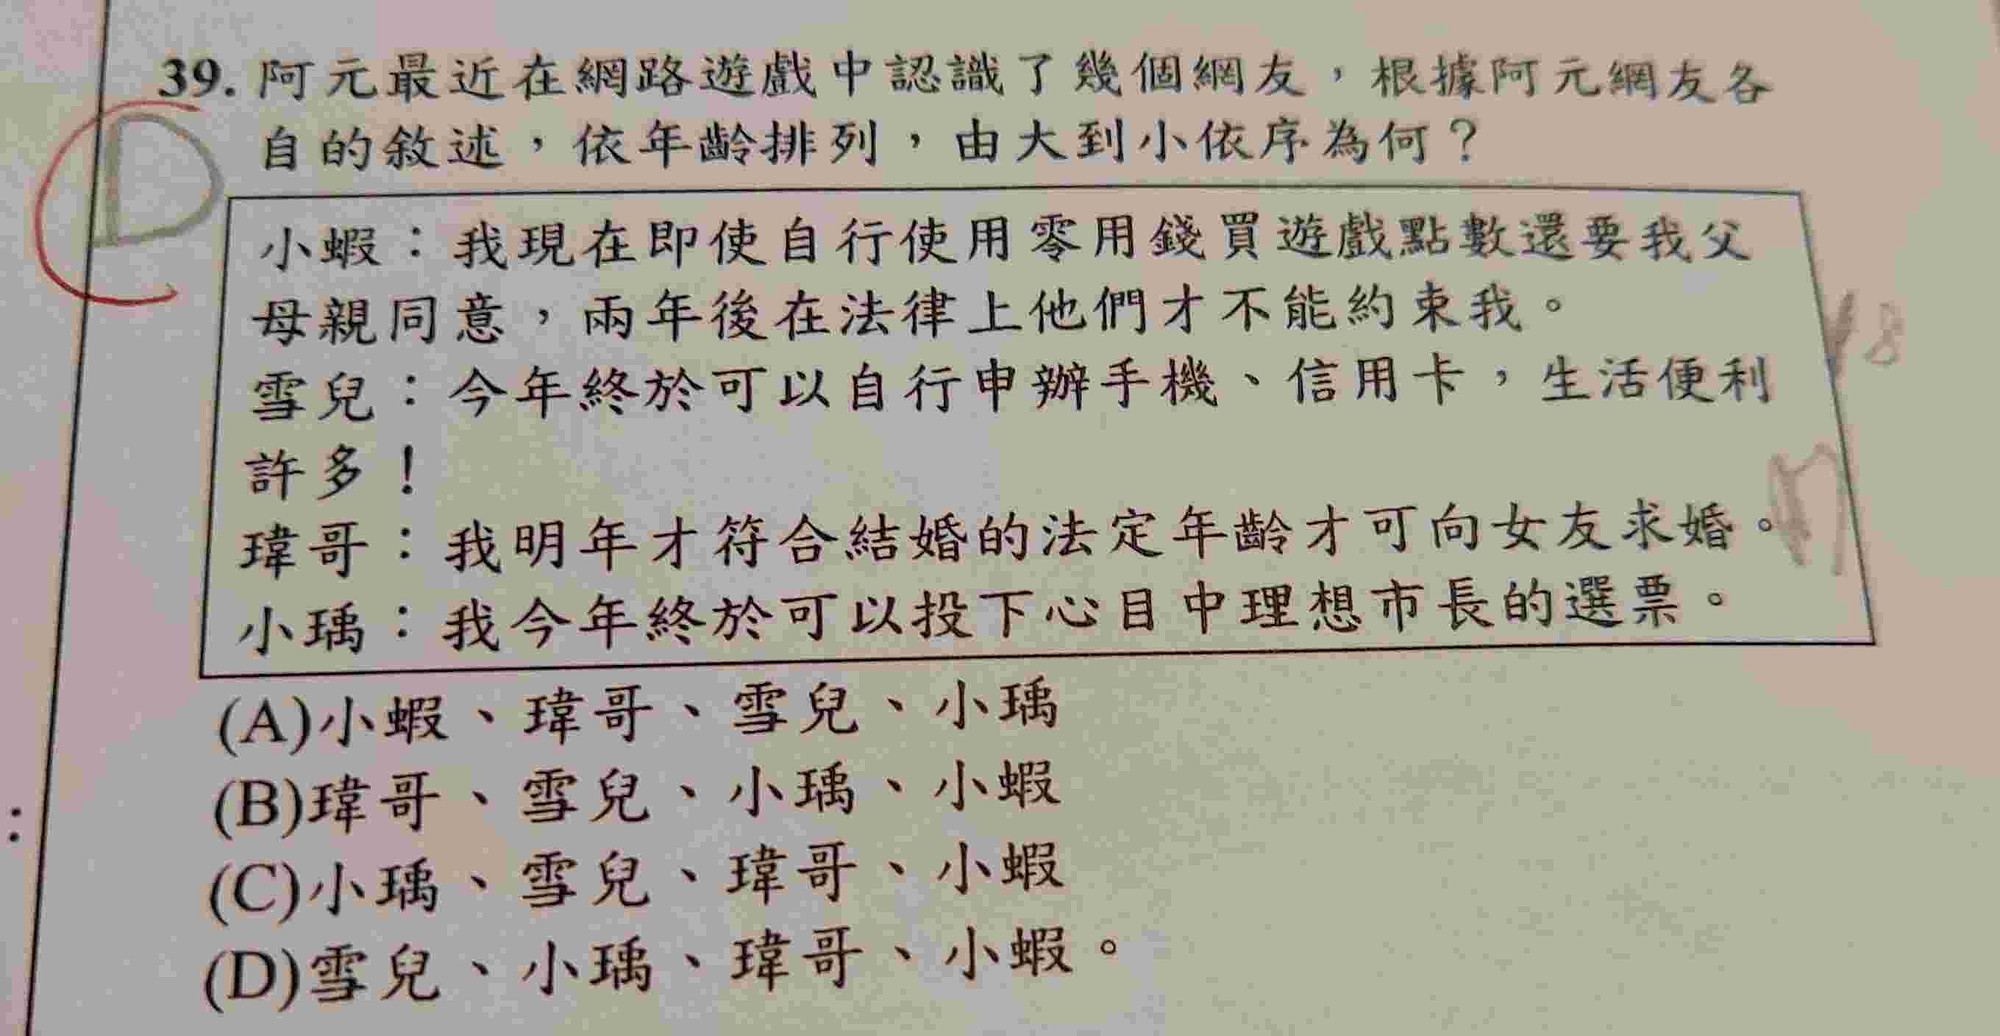 39. 阿元最近在網路遊戲中認識了幾個網友，根據阿元網友各
自的敘述，依年齡排列，由大到小依序為何？
D
小蝦：我現在即使自行使用零用錢買遊戲點數還要我父
母親同意，兩年後在法律上他們才不能約束我。
18
雪兒：今年終於可以自行申辦手機、信用卡，生活便利
許多！
瑋哥：我明年才符合結婚的法定年齡才可向女友求婚。
17
小瑀：我今年終於可以投下心目中理想市長的選票。
(A)小蝦、瑋哥、雪兒、小瑀
(B)瑋哥、雪兒、小瑀、小蝦
(C)小瑀、雪兒、瑋哥、小蝦
(D)雪兒、小瑀、瑋哥、小蝦。
：